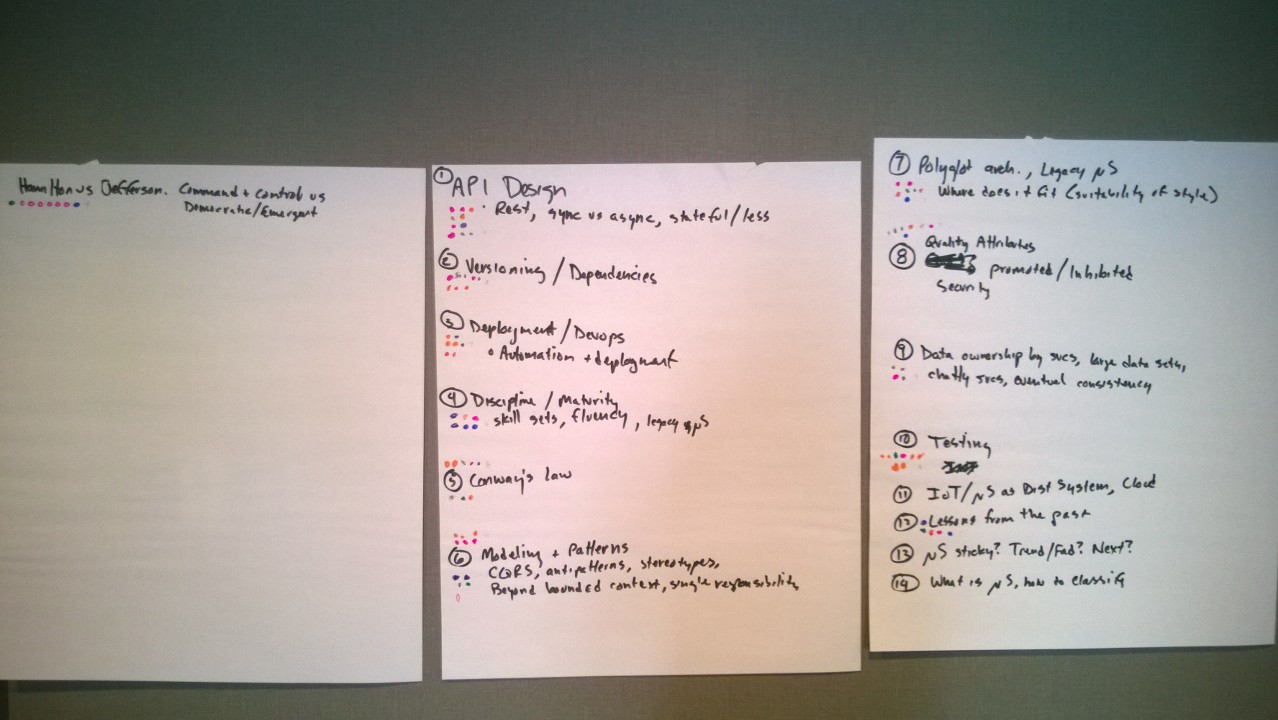 Hamilton vs Jefferson. Command + Control vs
Democratic/Emergent
① API Design
• Rest, sync vs async, stateful/less
② Versioning / Dependencies
③ Deployment / Devops
• Automation + deployment
④ Discipline / Maturity
skill sets, fluency, legacy → μS
⑤ Conway's law
⑥ Modeling + Patterns
CQRS, antipatterns, stereotypes,
Beyond bounded context, single responsibility
⑦ Polyglot arch., Legacy μS
Where does it fit (suitability of style)
Quality Attributes
⑧ promoted/Inhibited
Security
⑨ Data ownership by svcs, large data sets,
chatty svcs, eventual consistency
⑩ Testing
⑪ IoT/μS as Dist System, Cloud
⑫ Lessons from the past
⑬ μS sticky? Trend/Fad? Next?
⑭ What is μS, how to classify